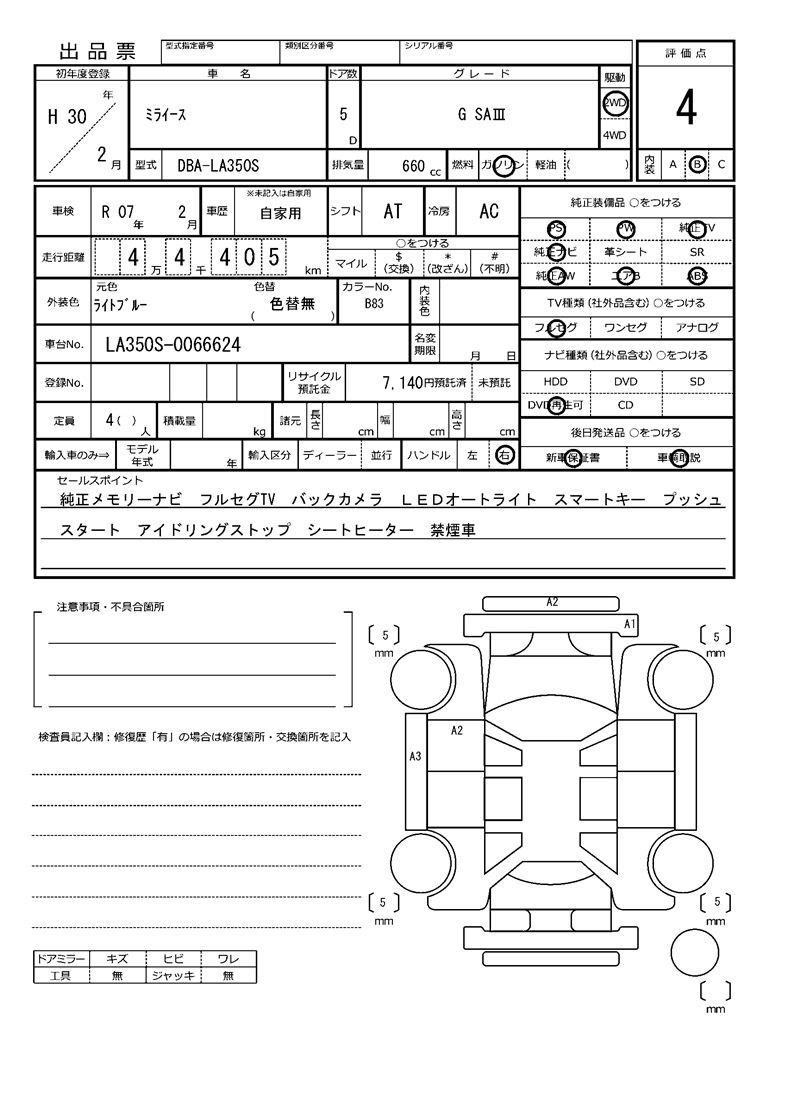 出品票
型式指定番号 類別区分番号 シリアル番号
評価点
初年度登録 車名 ドア数 グレード 駆動
H 30 年 2 月
ミライース
5 D
G SAⅢ
2WD
4WD
4
型式 DBA-LA350S 排気量 660 cc 燃料 ガソリン 軽油 ( )
内装 A B C
車検 R 07 年 2 月 車歴 ※未記入は自家用 自家用 シフト AT 冷房 AC
純正装備品 ○をつける
PS PW 純正TV
純正ナビ 革シート SR
純正AW エアB ABS
走行距離 4 万 4 千 4 0 5 km
○をつける
マイル $ (交換) * (改ざん) # (不明)
外装色 元色 ライトブルー 色替 ( 色替無 ) カラーNo. B83 内装色
TV種類(社外品含む) ○をつける
フルセグ ワンセグ アナログ
車台No. LA350S-0066624 名変期限 月 日
ナビ種類(社外品含む) ○をつける
HDD DVD SD
DVD再生可 CD
登録No. リサイクル預託金 7,140円預託済 未預託
定員 4( ) 人 積載量 kg 諸元 長さ cm 幅 cm 高さ cm
後日発送品 ○をつける
新車保証書 車輌取説
輸入車のみ⇒ モデル年式 年 輸入区分 ディーラー 並行 ハンドル 左 右
セールスポイント
純正メモリーナビ フルセグTV バックカメラ LEDオートライト スマートキー プッシュ
スタート アイドリングストップ シートヒーター 禁煙車
注意事項・不具合箇所
検査員記入欄:修復歴「有」の場合は修復箇所・交換箇所を記入
A2
A1
5 mm
5 mm
A2
A3
5 mm
5 mm
mm
ドアミラー キズ ヒビ ワレ
工具 無 ジャッキ 無